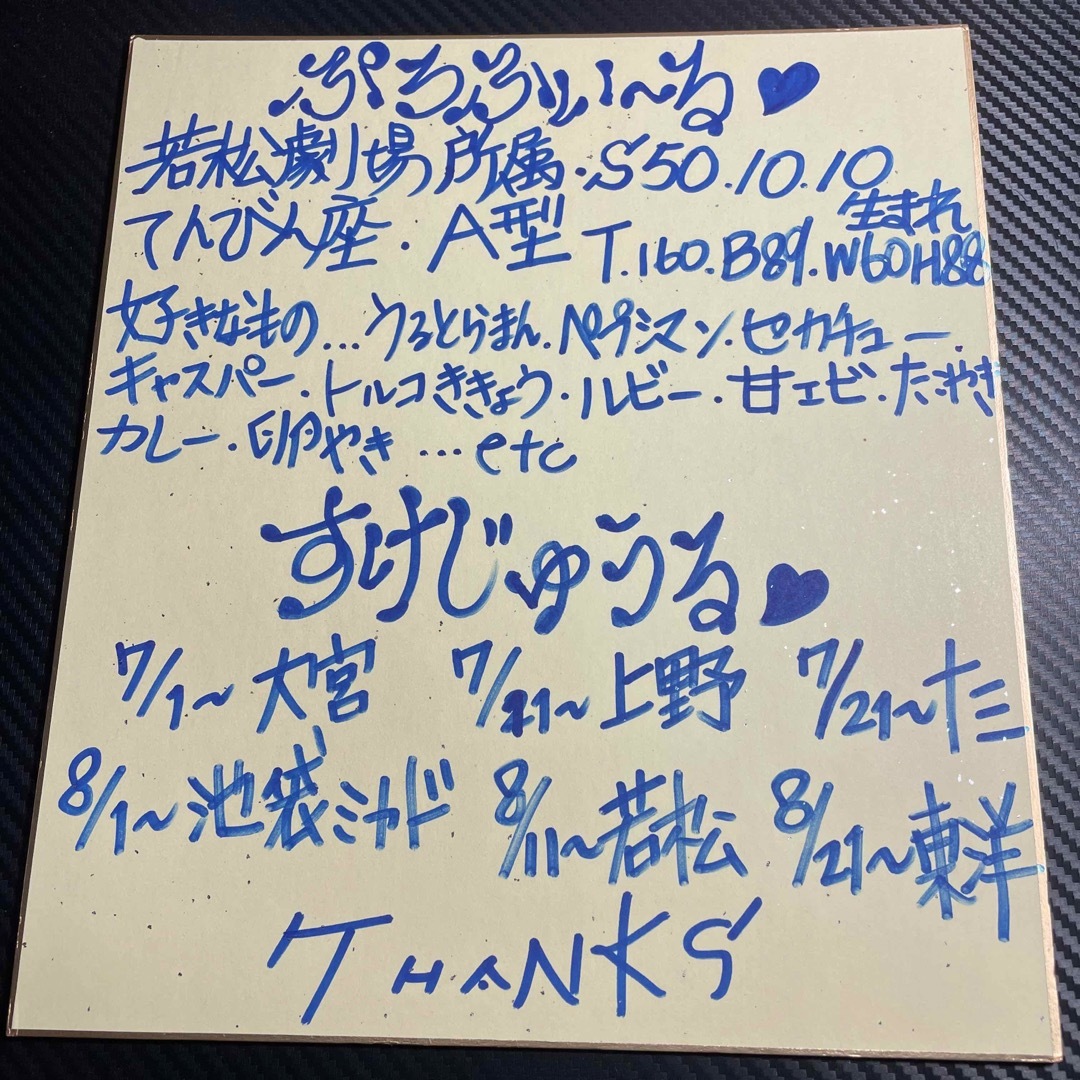 ぷろふぃ〜る♥
若松劇場所属・S50.10.10
生まれ
てんびん座・A型 T.160.B89.W60H88
好きなもの…うるとらまん.ペプシマン・セカチュー.
キャスパー.トルコききょう・ルビー・甘エビ.たいやき
カレー・卵やき…etc
すけじゅうる♥
7/1〜大宮 7/11〜上野 7/21〜十三
8/1〜池袋ミカド 8/11〜若松 8/21〜東洋
THANKS